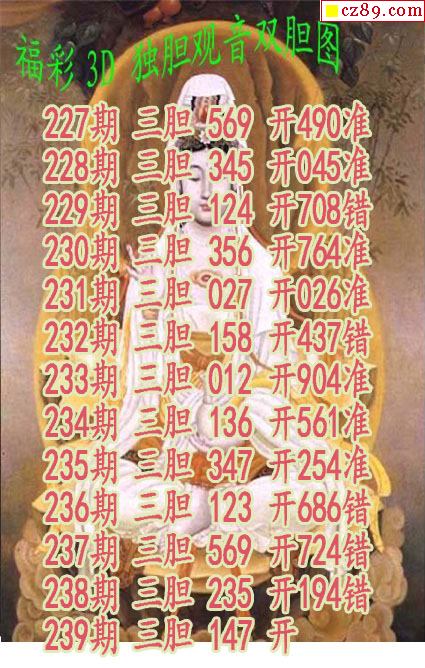 cz89.com
福彩 3D 独胆观音双胆图
227期 三胆 569 开490准
228期 三胆 345 开045准
229期 三胆 124 开708错
230期 三胆 356 开764准
231期 三胆 027 开026准
232期 三胆 158 开437错
233期 三胆 012 开904准
234期 三胆 136 开561准
235期 三胆 347 开254准
236期 三胆 123 开686错
237期 三胆 569 开724错
238期 三胆 235 开194错
239期 三胆 147 开